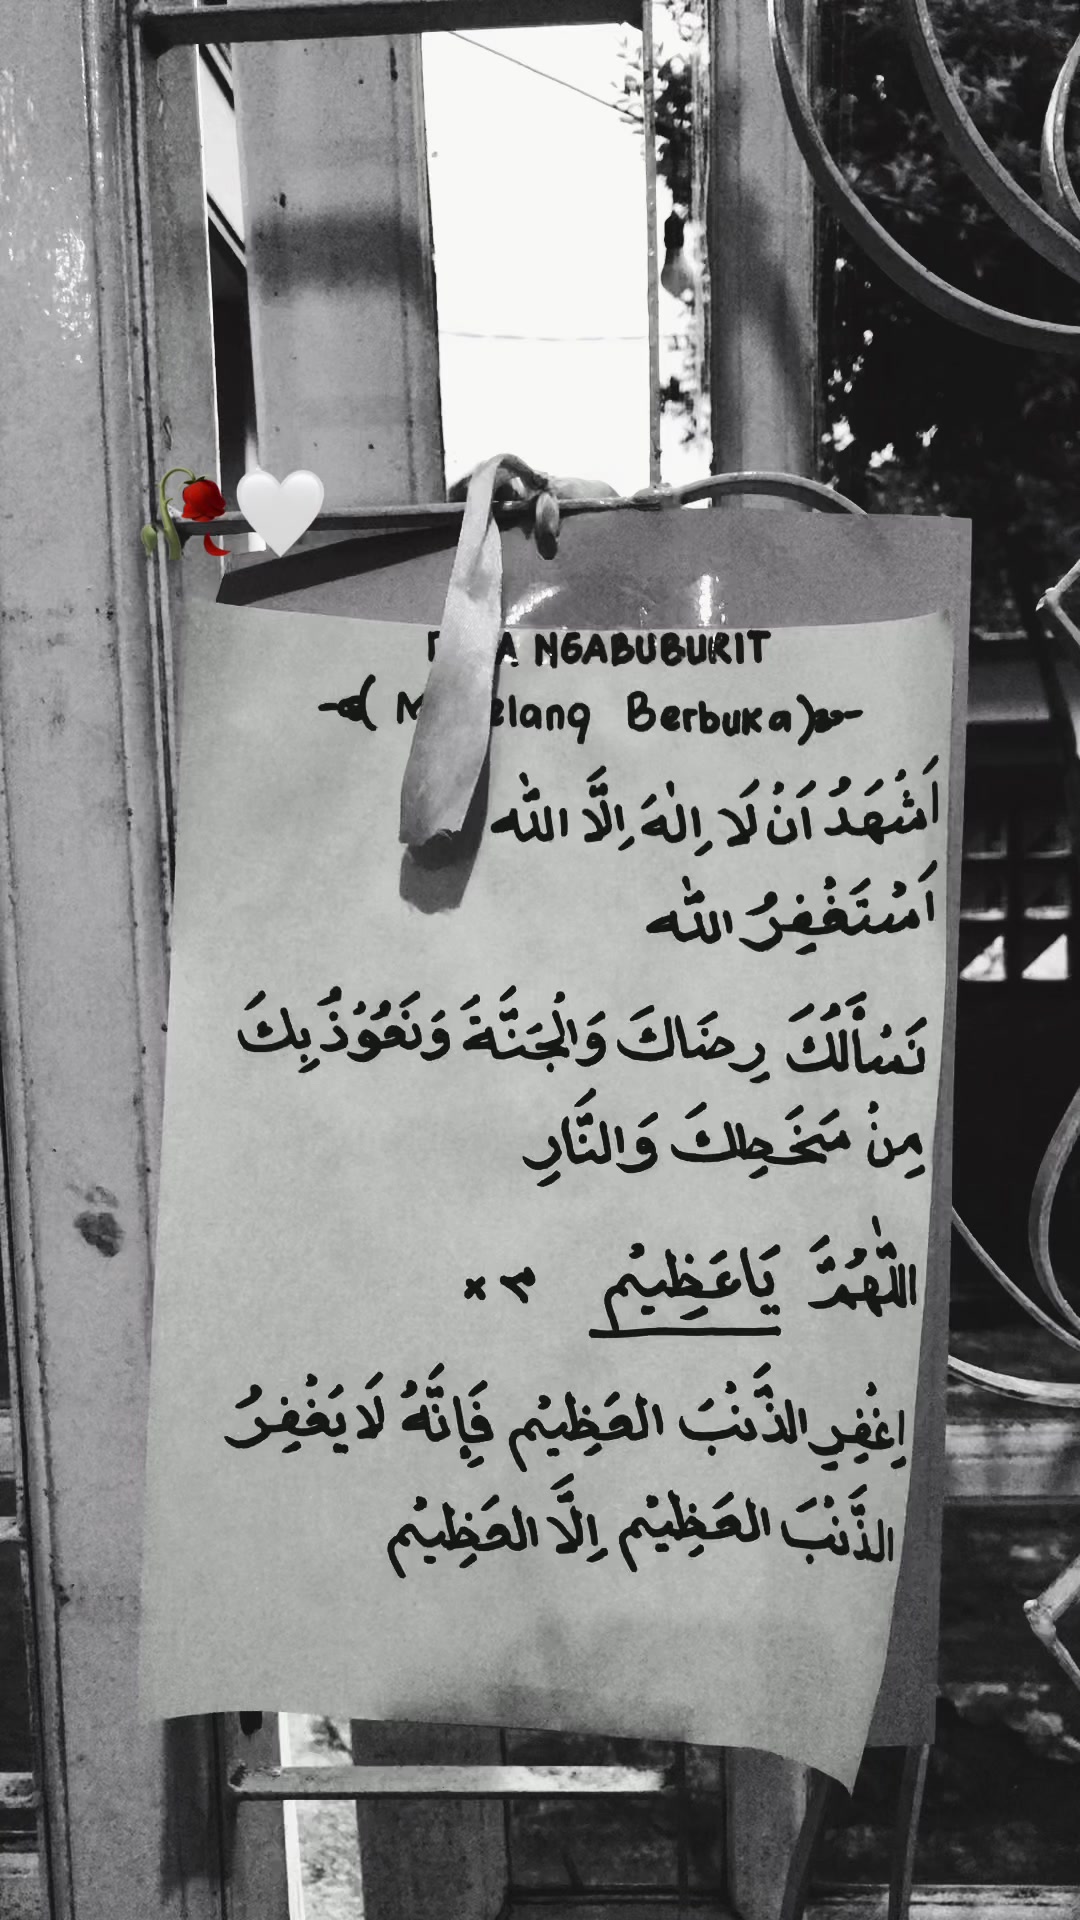 NGABUBURIT
Berbuka)
اَشْهَدُ اَنْ لَا اِلٰهَ اِلَّا اللّٰه
اَسْتَغْفِرُ اللّٰه
نَسْأَلُكَ رِضَاكَ وَالْجَنَّةَ وَنَعُوْذُ بِكَ
مِنْ سَخَطِكَ وَالنَّارِ
اللّٰهُمَّ يَاعَظِيْم ٣ ×
اِغْفِرِ الذَّنْبَ العَظِيْم فَإِنَّهُ لَا يَغْفِرُ
الذَّنْبَ العَظِيْم اِلَّا العَظِيْم